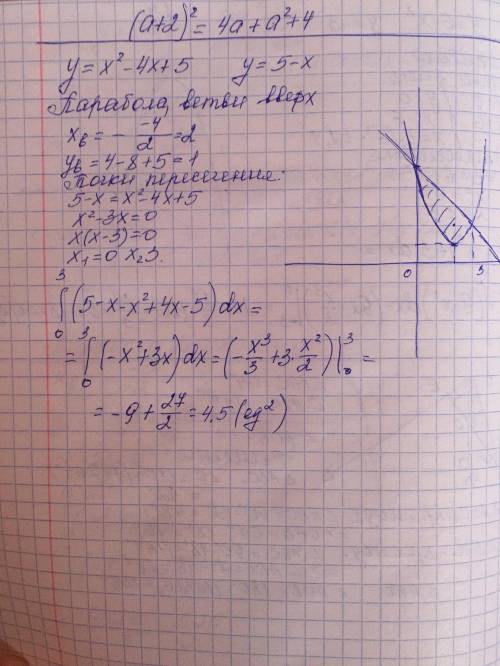 (a+2)² = 4a+a²+4
y=x²-4x+5 y=5-x
Парабола, ветви вверх
x_в = - -4/2 = 2
y_в = 4-8+5=1
Точки пересечения:
5-x=x²-4x+5
x²-3x=0
x(x-3)=0
x₁=0 x₂3.
∫₀³(5-x-x²+4x-5)dx=
=∫₀³(-x²+3x)dx=(-x³/3+3·x²/2)|₀³=
=-9+27/2=4.5(ед²)
0 3